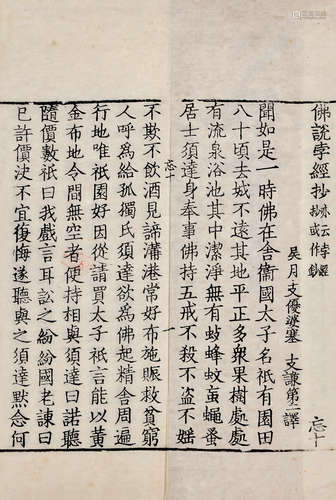 佛說孛經抄 亦云孛經抄或作鈔
吳月支優婆塞 支謙第二譯 忘十
聞如是一時佛在舍衞國太子名祇有園田
八十頃去城不遠其地平正多衆果樹處處
有流泉浴池其中潔淨無有蚑蜂蚊虽蠅蚤
居士須達身奉事佛持五戒不殺不盜不婬
忘 一
不欺不飲酒見諦溝港常好布施賑救貧窮
人呼為給孤獨氏須達欲為佛起精舍周遍
行地唯祇園好因從請買太子祇言能以黃
金布地令間無空者便持相與須達曰諾聽
隨價數祇曰我戲言耳訟之紛紛國老諫曰
已許價決不宜復悔遂聽與之須達默念何